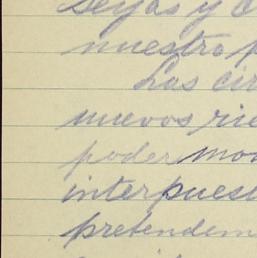 seijas y
nuestro
Las cir
nuevos rie
poder mon
interpuest
pretendem